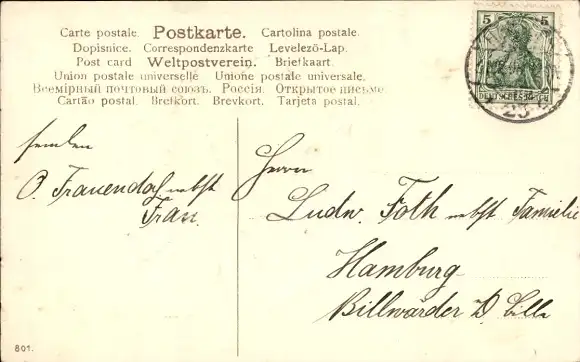 Carte postale. Postkarte. Cartolina postale.
Dopisnice. Correspondenzkarte Levelező-Lap.
Post card Weltpostverein. Briefkaart.
Union postale universelle Unione postale universale.
Всемірный почтовый союзъ. Россія. Открытое письмо
Cartão postal. Brefkort. Brevkort. Tarjeta postal.
5 5
DEUTSCHES REICH
25
senden
O. Frauendorf nebst
Frau.
Herrn
Ludw. Foth nebst Familie
Hamburg
Billwärder
801.